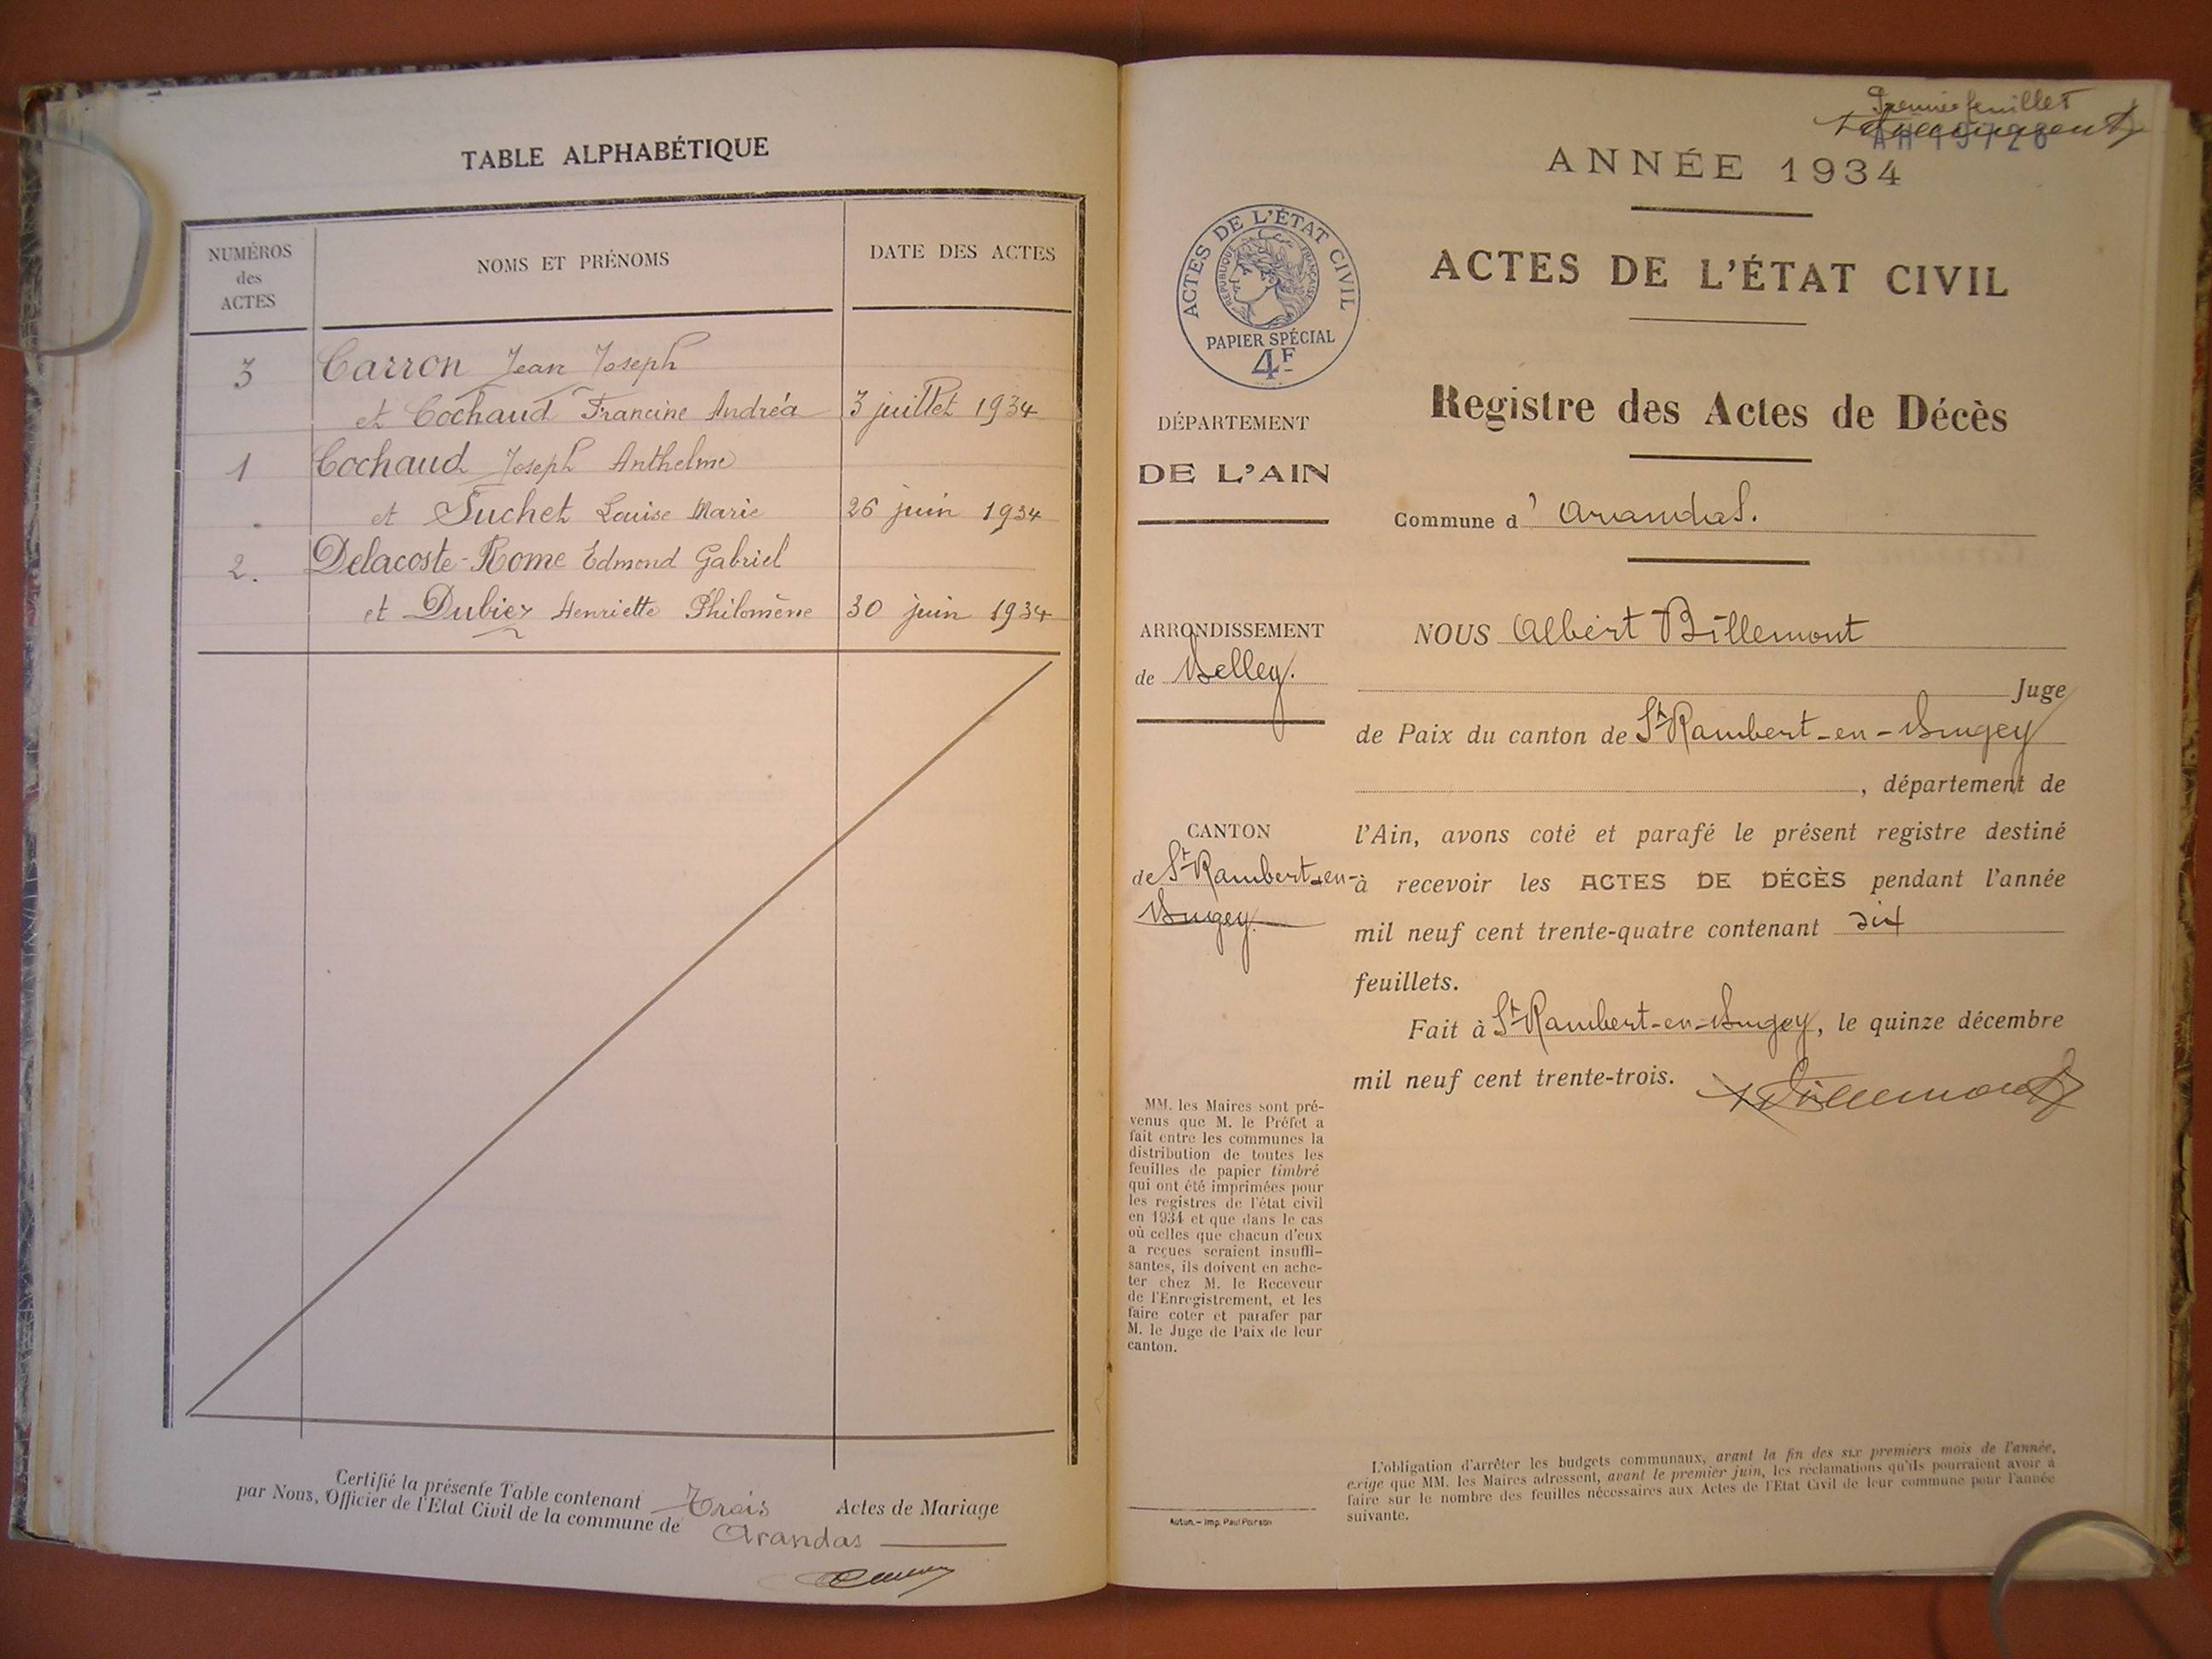 TABLE ALPHABÉTIQUE
NUMÉROS
des
ACTES
NOMS ET PRÉNOMS
DATE DES ACTES
3 Carron Jean Joseph
et Cochaud Francine Andréa 3 juillet 1934
1 Cochaud Joseph Anthelme
et Suchet Louise Marie 26 juin 1934
2. Delacoste-Rome Edmond Gabriel
et Dubiez Henriette Philomène 30 juin 1934
Certifié la présente Table contenant Trois Actes de Mariage
par Nous, Officier de l'Etat Civil de la commune de Arandas
Premier feuillet
ANNÉE 1934
ACTES DE L'ÉTAT CIVIL
RÉPUBLIQUE FRANÇAISE
PAPIER SPÉCIAL
4F
ACTES DE L'ÉTAT CIVIL
Registre des Actes de Décès
DÉPARTEMENT
DE L'AIN
Commune d' Arandas.
ARRONDISSEMENT
de Belley.
CANTON
de St Rambert-en-
Bugey.
NOUS Albert Billemont
Juge
de Paix du canton de St Rambert-en-Bugey
, département de
l'Ain, avons coté et parafé le présent registre destiné
à recevoir les ACTES DE DÉCÈS pendant l'année
mil neuf cent trente-quatre contenant six
feuillets.
Fait à St Rambert-en-Bugey, le quinze décembre
mil neuf cent trente-trois.
MM. les Maires sont pré-
venus que M. le Préfet a
fait entre les communes la
distribution de toutes les
feuilles de papier timbré
qui ont été imprimées pour
les registres de l'état civil
en 1934 et que dans le cas
où celles que chacun d'eux
a reçues seraient insuffi-
santes, ils doivent en ache-
ter chez M. le Receveur
de l'Enregistrement, et les
faire coter et parafer par
M. le Juge de Paix de leur
canton.
Autun. – Imp. Paul Poirson
L'obligation d'arrêter les budgets communaux, avant la fin des six premiers mois de l'année,
exige que MM. les Maires adressent, avant le premier juin, les réclamations qu'ils pourraient avoir à
faire sur le nombre des feuilles nécessaires aux Actes de l'Etat Civil de leur commune pour l'année
suivante.